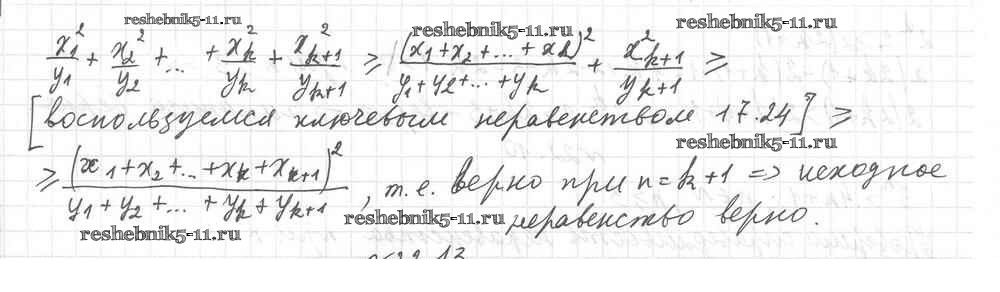 reshebnik5-11.ru reshebnik5-11.ru reshebnik5-11.ru
x₁²/y₁ + x₂²/y₂ + ... + xₖ²/yₖ + x²ₖ₊₁/yₖ₊₁ ≥ (x₁+x₂+...+xₖ)²/(y₁+y₂+...+yₖ) + x²ₖ₊₁/yₖ₊₁ ≥
[воспользуемся ключевым неравенством 17.24] ≥
reshebnik5-11.ru
≥ (x₁+x₂+...+xₖ+xₖ₊₁)²/(y₁+y₂+...+yₖ+yₖ₊₁), т.е. верно при n=k+1 => исходное
reshebnik5-11.ru неравенство верно.
reshebnik5-11.ru